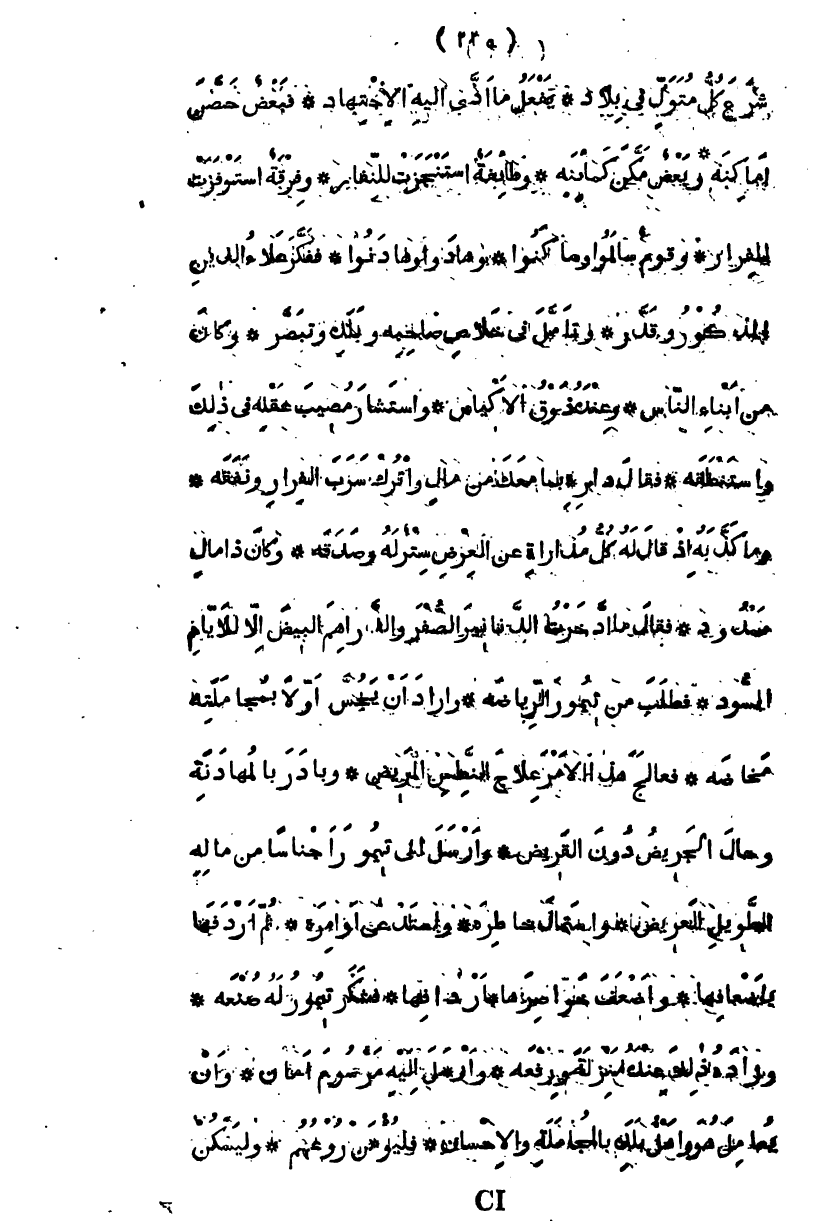 ( ٢٢٥ )
شَرَعَ كُلُّ مُتَوَلٍّ في بِلادٍ * يَفْعَلُ ما اَدَّى اليهِ الاِجْتِهاد * فبَعْضٌ حَصَّنَ
اَماكِنَهُ * وبَعْضٌ مَكَّنَ كَمائِنَه * وطائِفَةٌ استَنْجَزَتْ للنِّفارِ * وفِرْقَةٌ استَوْفَزَتْ
للفِرار * وقومٌ سالَموا وما * وهادَوْا وهادَنُوا * ففكَّرَ علاءُ الدينِ
المذكورُ وقدَّر * وتأمَّلَ في خلاصِ صاحبِه وبلَدِه وتبَصَّر * وكانَ
من اَبْناءِ النّاس * وعِنْدَهُ ذَوْقُ الاَكْياس * واستَشارَ مُصيبَ عَقْلِه في ذٰلِكَ
واستَنْطَقَه * فقالَ دارِ بما معَكَ من مالٍ واتْرُكْ سَرَبَ الفِرارِ ونَفَقَه *
وما كَذَّبَهُ اِذْ قالَ لَهُ كُلُّ مُداراةٍ عن العِرْضِ سِتْرٌ لَهُ وصَدَقه * وكانَ ذا مالٍ
مَمْدُود * فقالَ ما ادَّخَرْتُ الدَّنانيرَ الصُّفْرَ والدَّراهِمَ البِيضَ اِلّا للاَيّامِ
السُّود * فطَلَبَ من تيمُورَ الرِّياضَه * وارادَ اَنْ يَجُسَّ اَوَّلاً بمُجامَلَتِه
مَخاضَه * فعالجَ هذا الاَمْرَ عِلاجَ النَّطِسِ المَريضَ * وبادَرَ بالمُهادَنَةِ
وحالَ الجَرِيضُ دُونَ القَرِيض * واَرْسَلَ الى تيمُورَ اَجْناسًا من مالِهِ
الطَّويلِ العَرِيض * واستَمالَ خاطِرَه * واَوامِرَه * ثُمَّ اَرْدَفَها
باَضْعافِها * واَضْعَفَ خَواصِرَها باَرْدافِها * فشَكَرَ تيمُورُ لَهُ صُنْعَه *
وزادَهُ ذٰلِكَ عِنْدَهُ مَنْزِلَةً ورِفْعَه * واَرْسَلَ اِلَيْهِ مَرْسُومَ اَمان * وَاَنْ
يُعامِلَ هُوَ واَهْلُ بلَدِه بالمُجامَلَةِ والاِحْسان * فليُؤَمِّن رُوعَهُم * وليُسَكِّن
CI